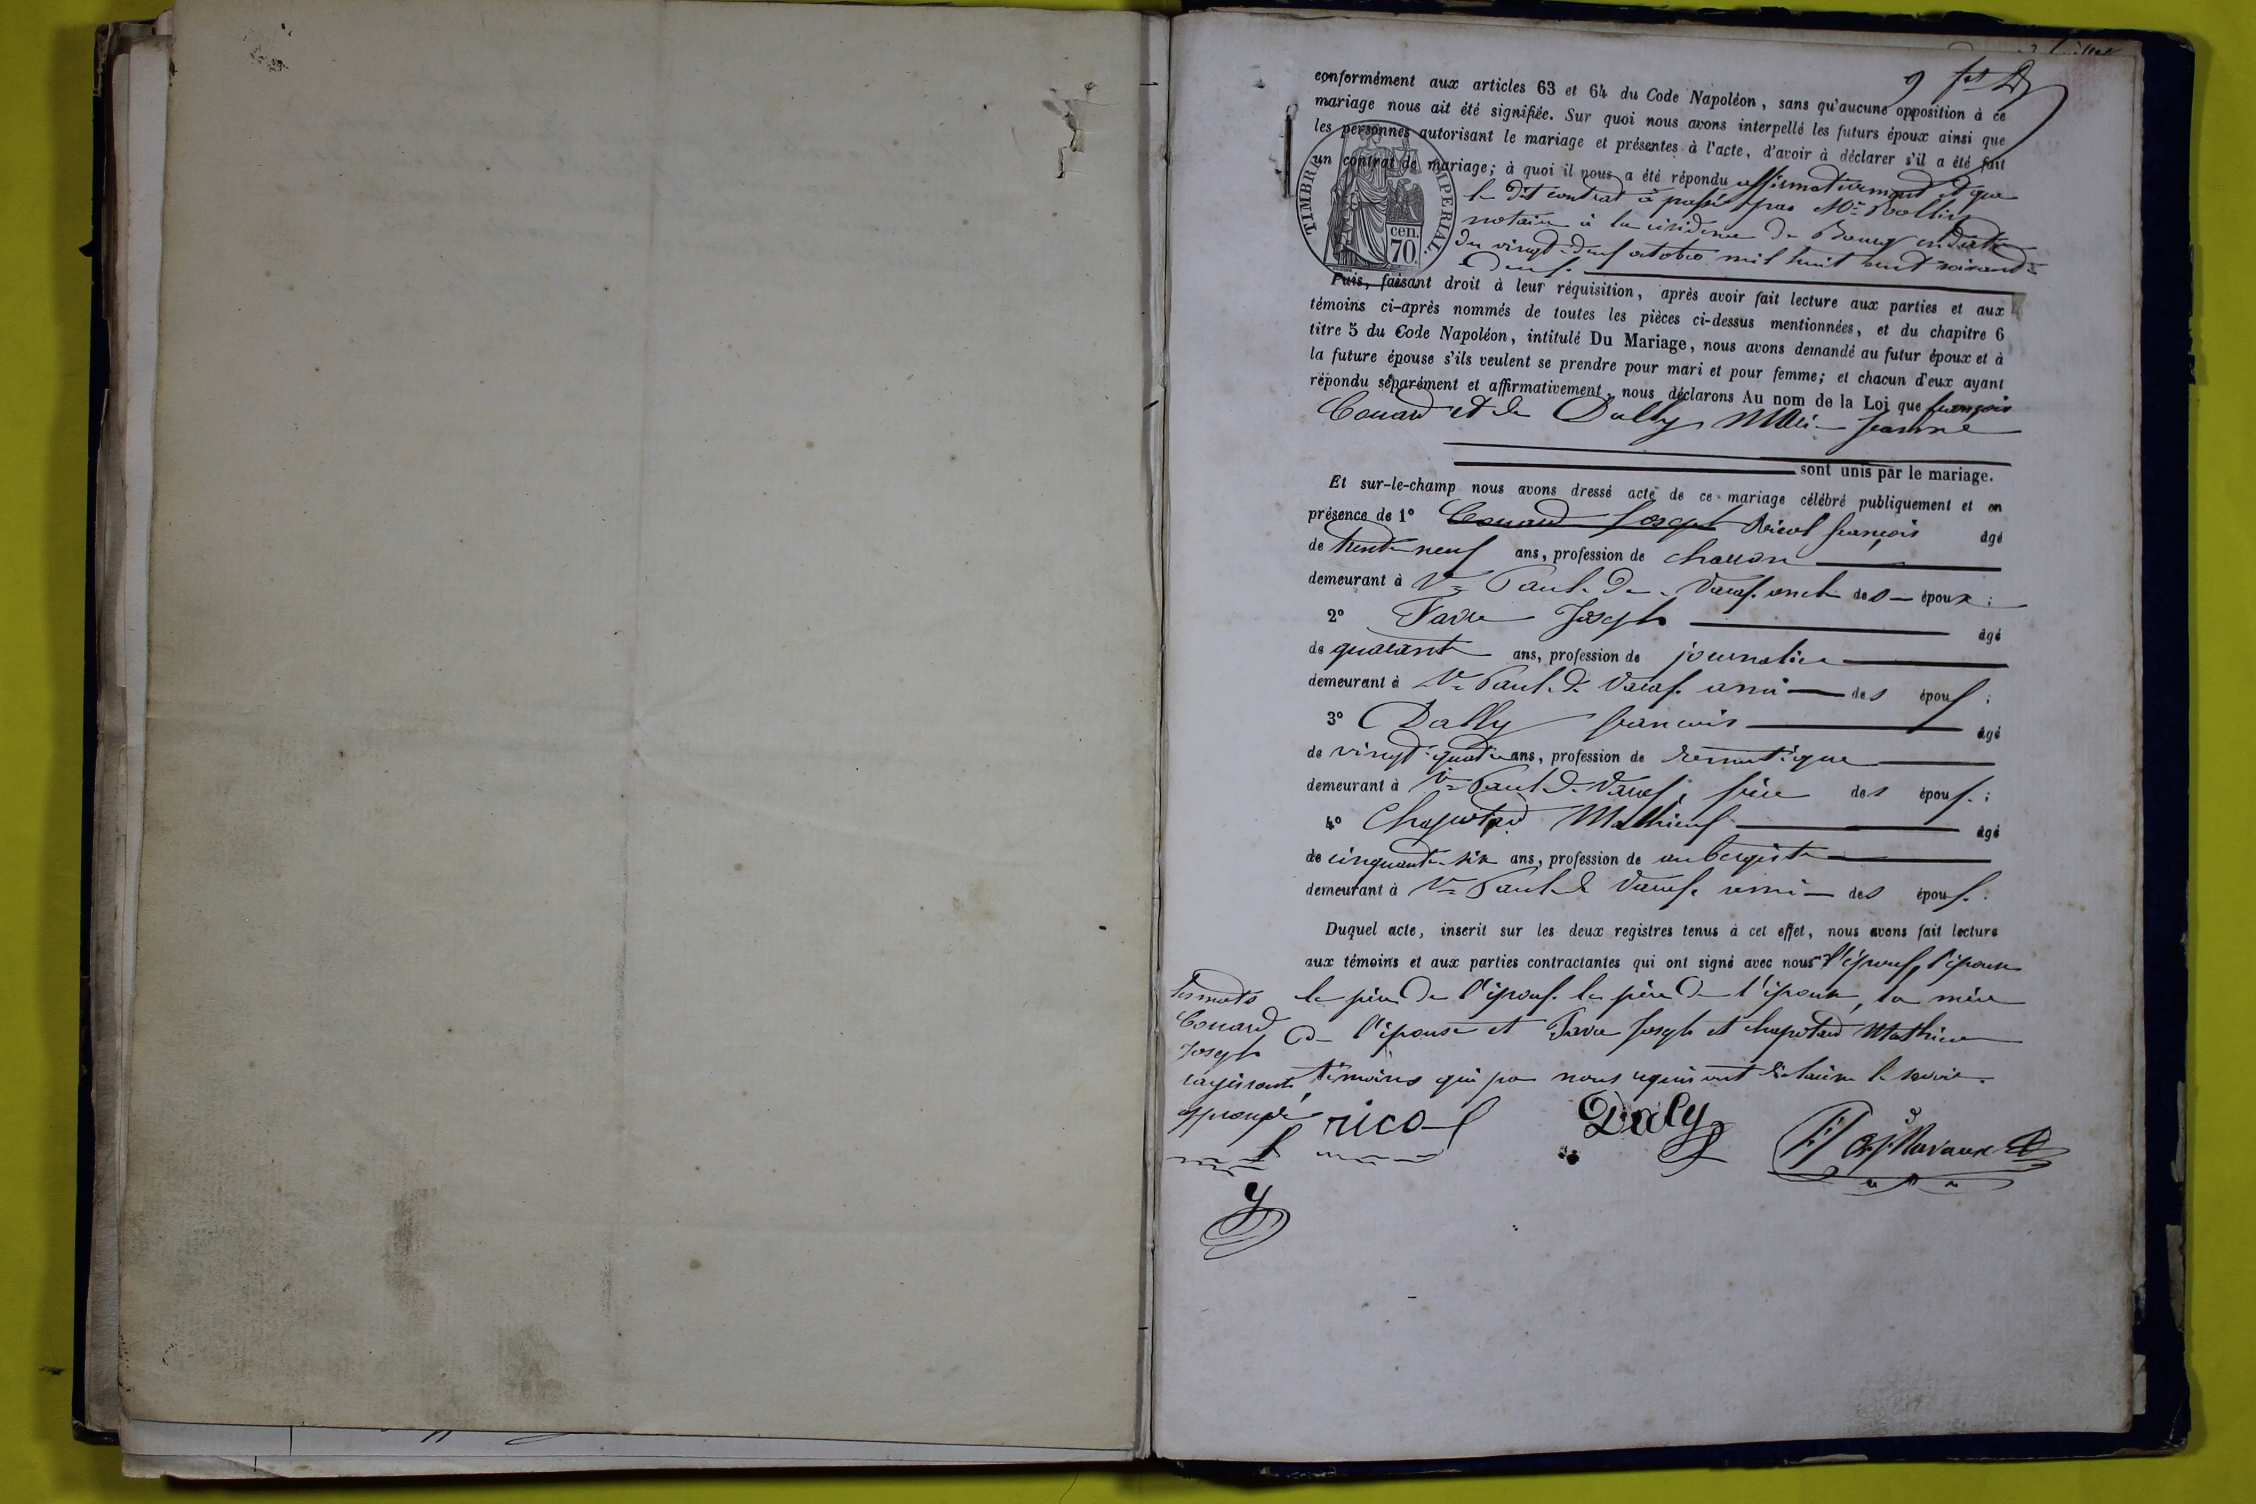 9 fet
conformément aux articles 63 et 64 du Code Napoléon, sans qu'aucune opposition à ce
mariage nous ait été signifiée. Sur quoi nous avons interpellé les futurs époux ainsi que
les personnes autorisant le mariage et présentes à l'acte, d'avoir à déclarer s'il a été fait
un contrat de mariage; à quoi il nous a été répondu affirmativement et que
le dit contrat à passé par Me Rollin
notaire à la résidence de Bourg en date
du vingt-deux octobre mil huit cent soixante
deux.
TIMBRE IMPERIAL.
cen.
70.
Puis, faisant droit à leur réquisition, après avoir fait lecture aux parties et aux
témoins ci-après nommés de toutes les pièces ci-dessus mentionnées, et du chapitre 6
titre 5 du Code Napoléon, intitulé Du Mariage, nous avons demandé au futur époux et à
la future épouse s'ils veulent se prendre pour mari et pour femme; et chacun d'eux ayant
répondu séparément et affirmativement, nous déclarons Au nom de la Loi que françois
Couard et la Dally Marie Jeanne
sont unis par le mariage.
Et sur-le-champ nous avons dressé acte de ce mariage célébré publiquement et en
présence de 1° Couard Joseph Ricol françois âgé
de trente neuf ans, profession de charron
demeurant à St Paul de Varax oncle des époux;
2° Favre Joseph âgé
de quarante ans, profession de journalier
demeurant à St Paul de Varax ami des époux;
3° Dally françois âgé
de vingt-quatre ans, profession de domestique
demeurant à St Paul de Varax, frère des époux;
4° Chapotard Mathieu âgé
de cinquante-six ans, profession de aubergiste
demeurant à St Paul de Varax ami des époux.
Duquel acte, inscrit sur les deux registres tenus à cet effet, nous avons fait lecture
aux témoins et aux parties contractantes qui ont signé avec nous l'époux, l'épouse
le père de l'époux le père de l'épouse, la mère
de l'épouse et Favre Joseph et chapotard Mathieu
témoins qui par nous requis ont déclaré le savoir.
Les mots
Couard
Joseph
rayés sont
approuvés
ricol
Daly